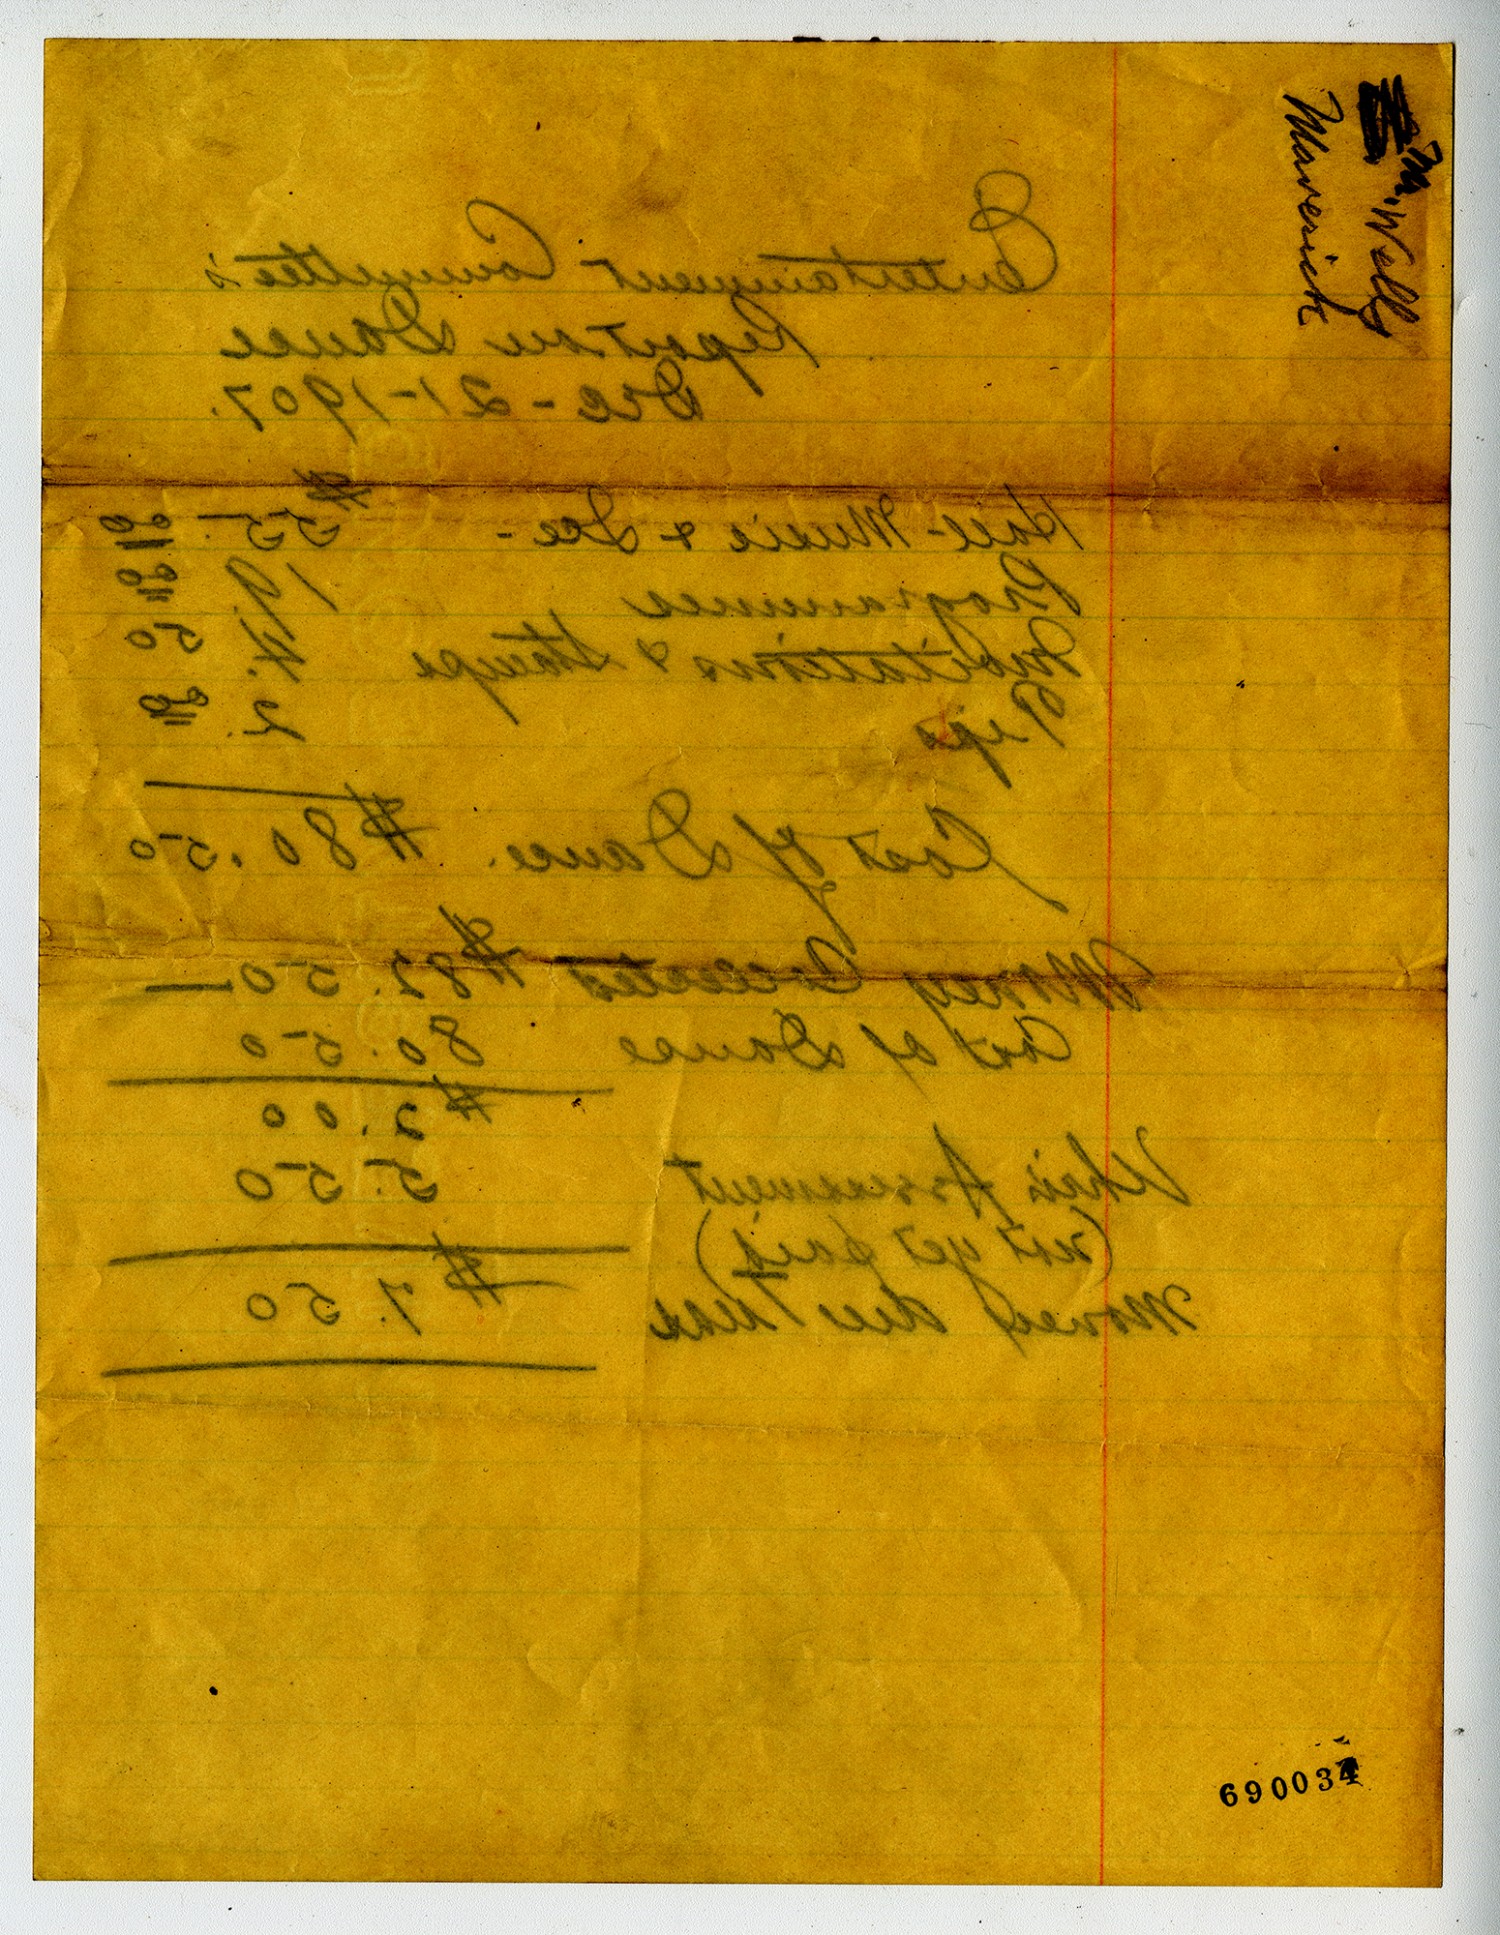 M. Wells
Maverick
Entertainment Committee's
Report on Dance
Dec - 21 - 1907.
Hall - Music & Ice - $55. 00
Programmes 19. 00
Invitations & Stamps 4. 50
Tips 2. 00
Cost of Dance. $80.50
Money Collected $82.50
Cost of Dance 80.50
$2.00
Assessment 5.50
(not yet paid)
Money due Treas $7.50
690034